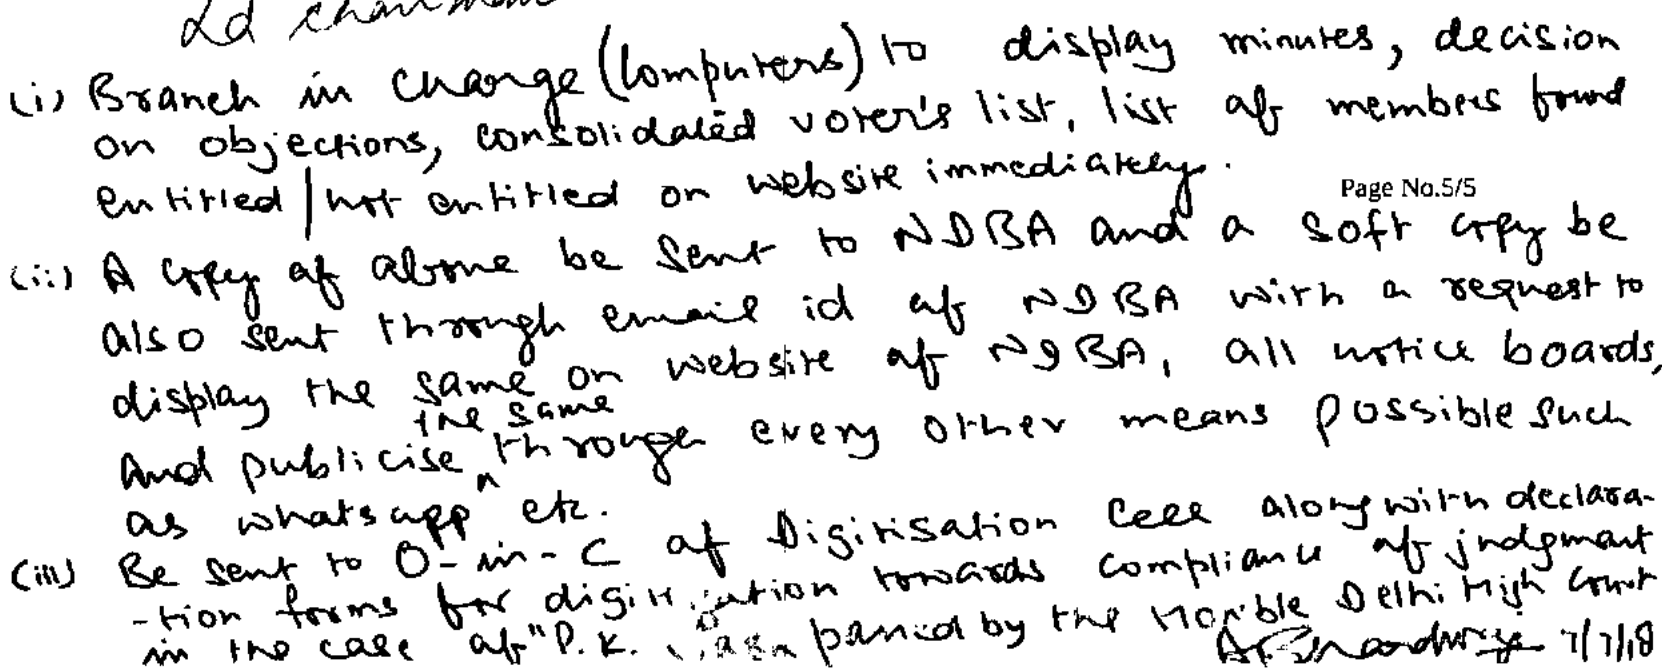 Ld chairman
(i) Branch in charge (Computers) to display minutes, decision
on objections, consolidated voter's list, list of members found
entitled/not entitled on website immediately.
Page No.5/5
(ii) A copy of above be sent to NDBA and a soft copy be
also sent through email id of NDBA with a request to
display the same on website of NDBA, all notice boards,
the same
And publicise ^ through every other means possible such
as whatsapp etc.
(iii) Be sent to O-in-C of Digitisation Cell along with declara-
-tion forms for digitisation towards compliance of judgment
in the case of "P.K. passed by the Hon'ble Delhi High Court
7/7/18